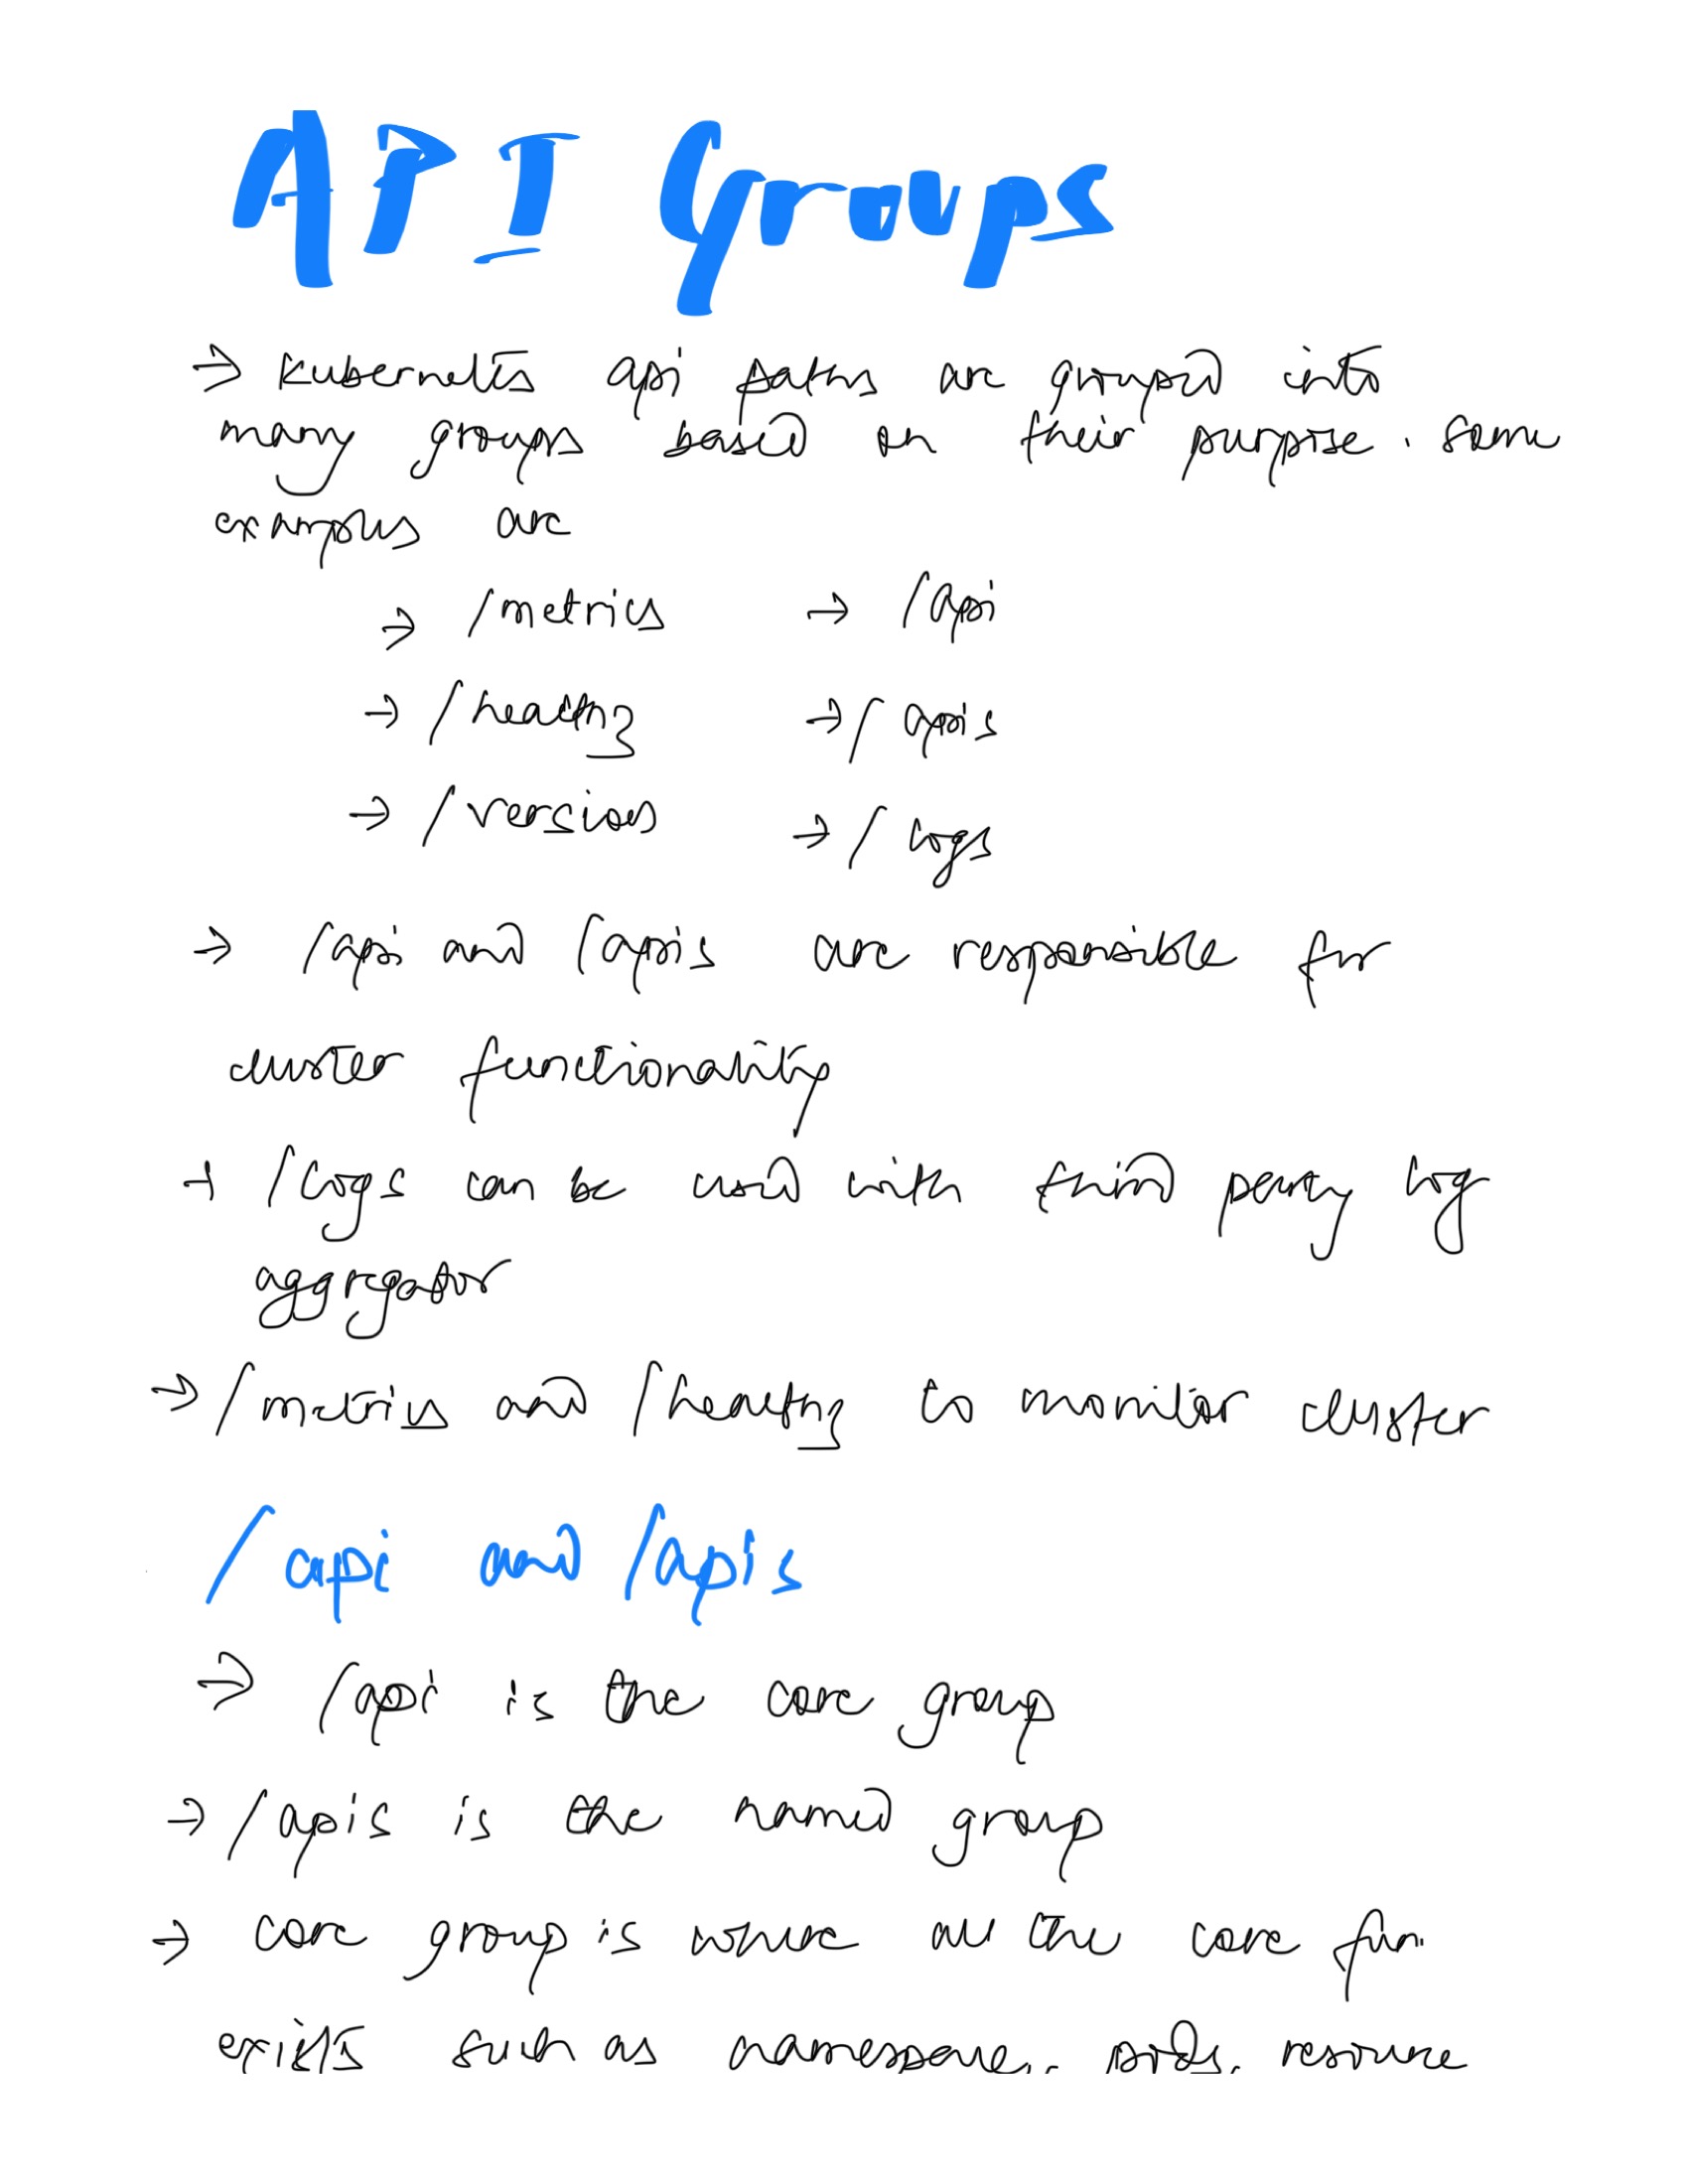 API Groups
→ Kubernetes api paths are grouped into
many groups based on their purpose. some
examples are
→ /metrics → /api
→ /healthz → /apis
→ /versions → /logs
→ /api and /apis are responsible for
cluster functionality
→ /logs can be used with third party log
aggregator
→ /metrics and /healthz to monitor cluster
/api and /apis
→ /api is the core group
→ /apis is the named group
→ core group is where all the core fun.
exists such as namespace, pods, resource